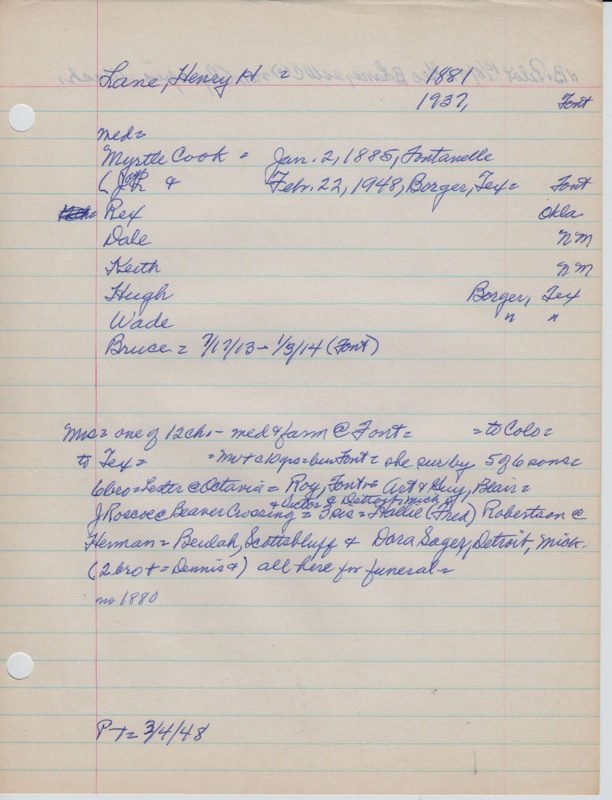 Lane, Henry H = 1881
1937, Font
med=
Myrtle Cook = Jan. 2, 1885, Fontanelle
( & Feb. 22, 1948, Borger, Tex= Font
Rex Okla
Dale NM
Keith NM
Hugh Borger, Tex
Wade " "
Bruce = 7/17/13 - 1/3/14 (Font)
Mrs= one of 12chs - med & farm @ Font= = to Colo=
to Tex= = Font= she sur by 5 of 6 sons=
6bro=Lester @ Octavia = Roy, Font= Art & Guy, Blair=
& Victor @ Detroit, Mich
J Roscoe @ Beaver Crossing = 3sis = Hallie (Fred) Robertson @
Herman = Beulah, Scottsbluff & Dora Sager, Detroit, Mich.
(2bro += Dennis &) all here for funeral=
no 1880
P T= 3/4/48